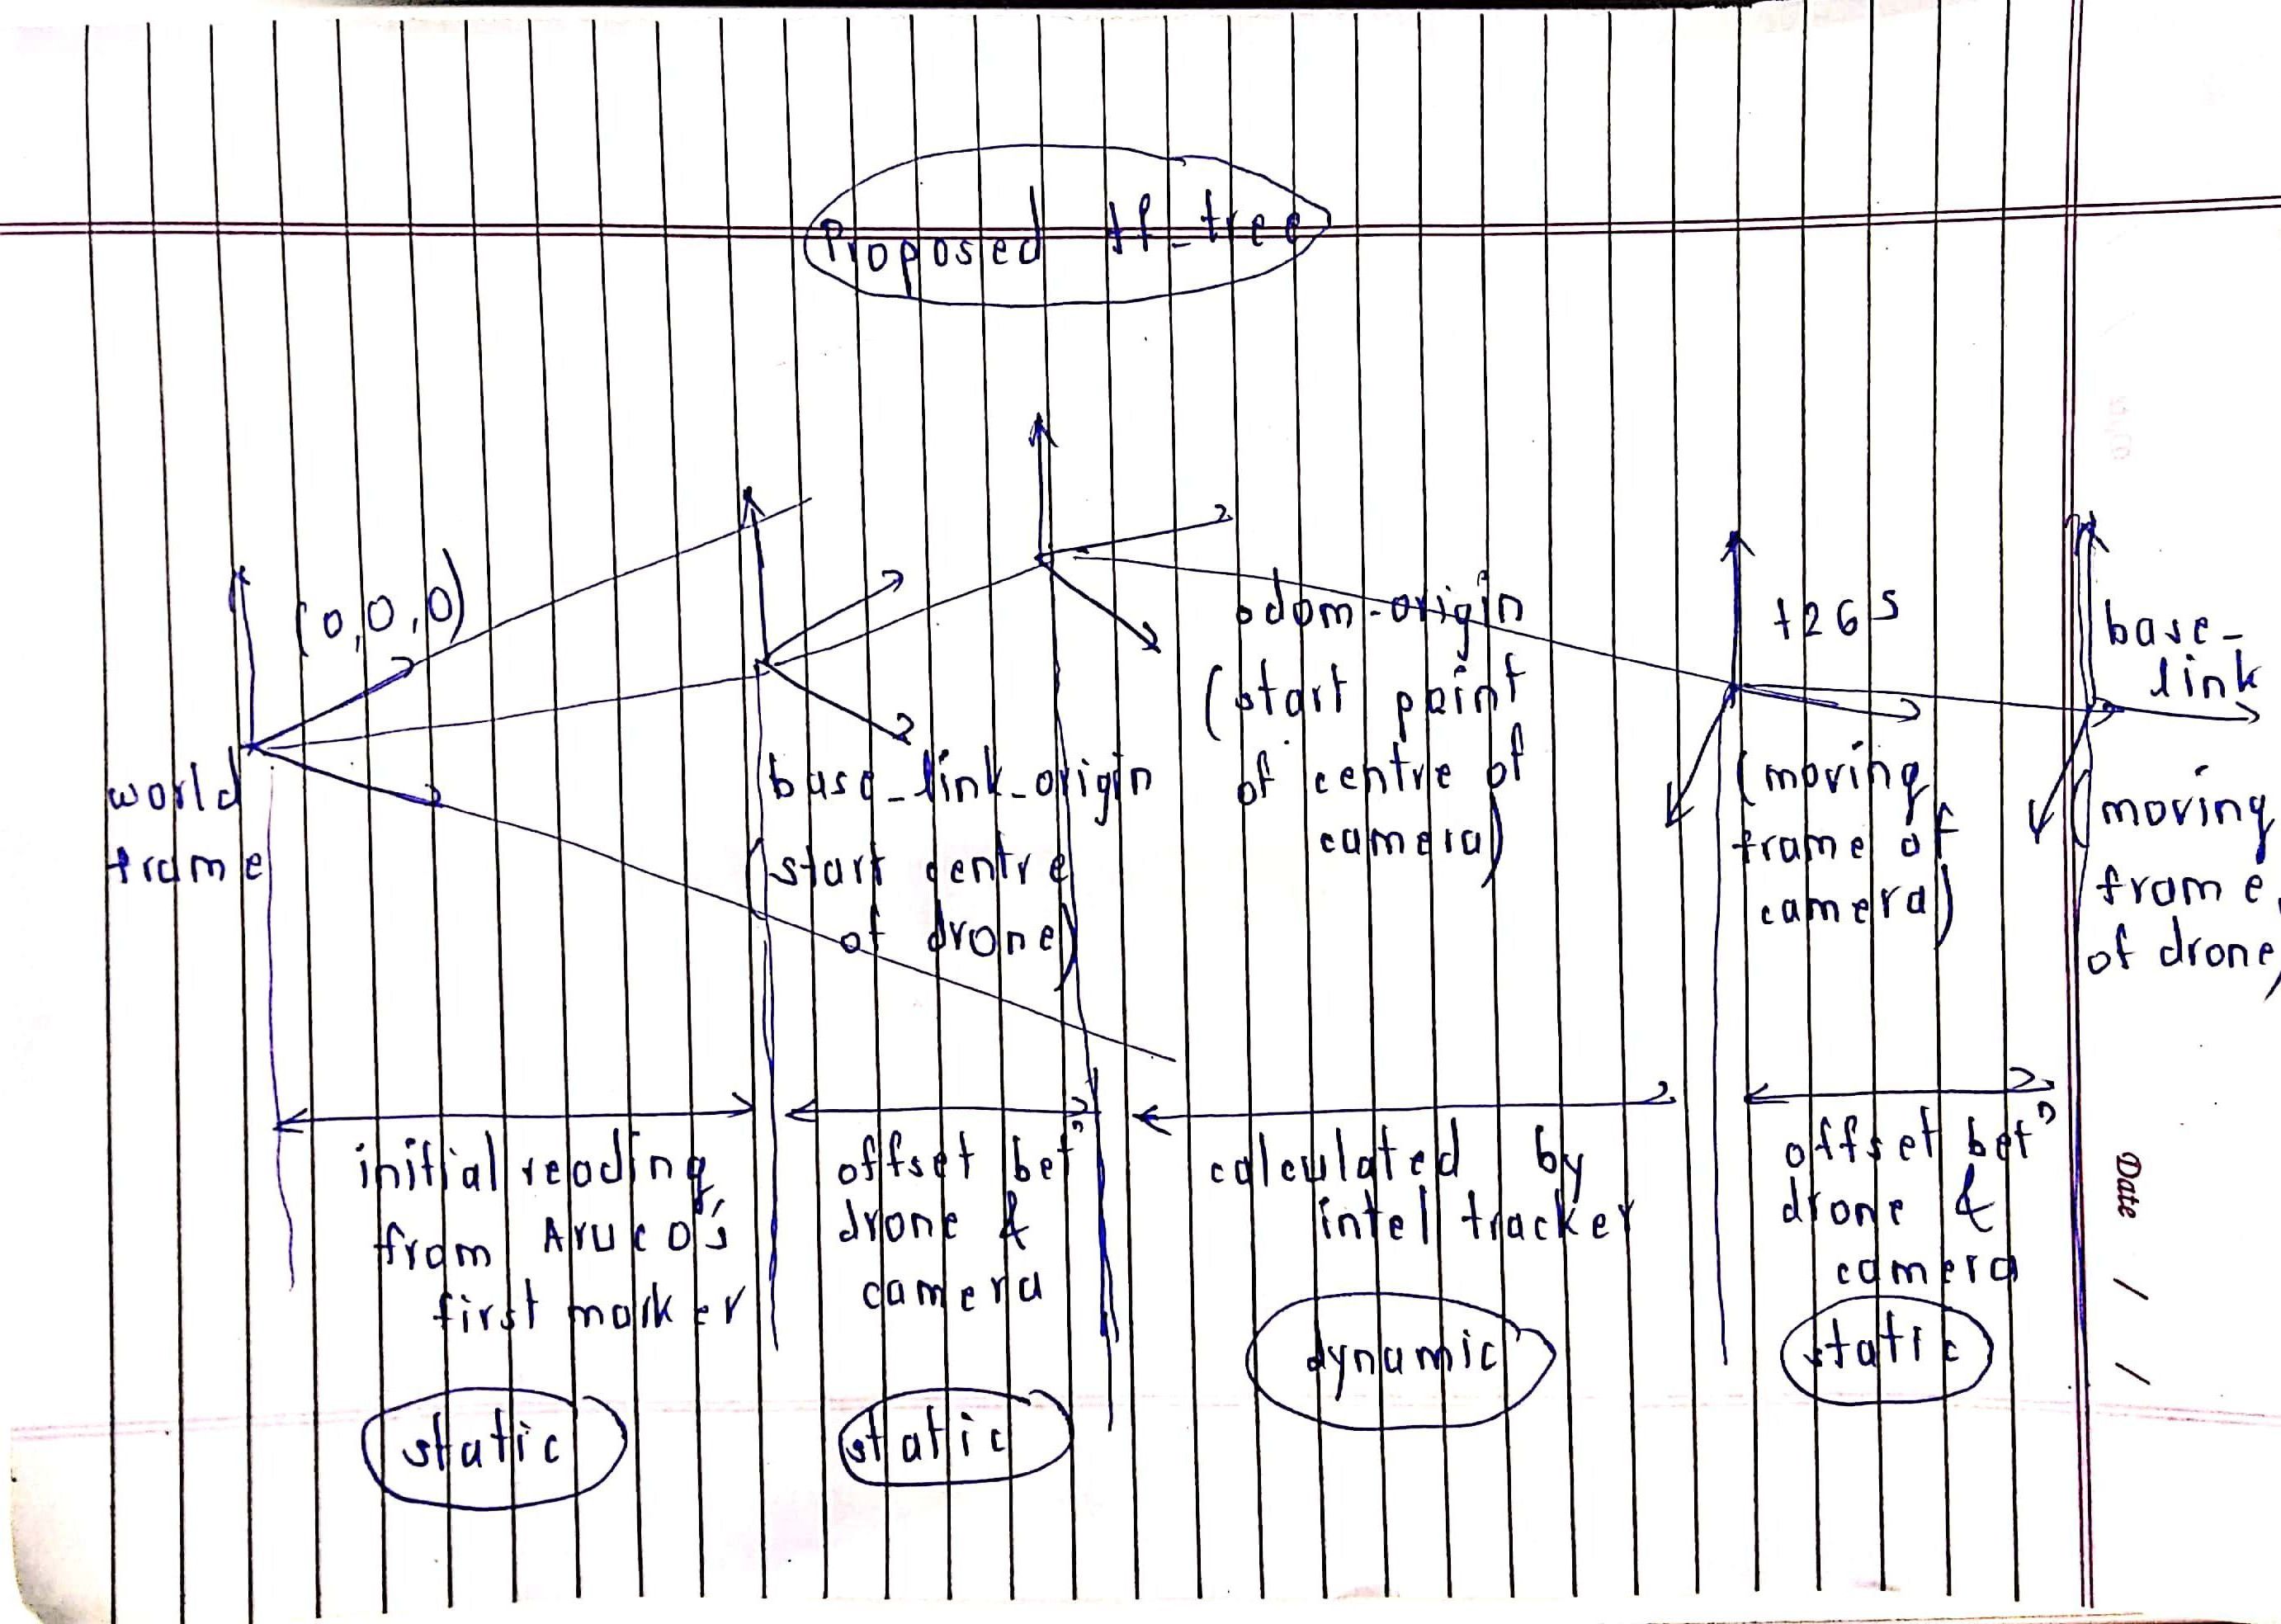 Proposed tf_tree
(0,0,0)
world
frame
base_link_origin
(start centre
of drone)
odom-origin
(start point
of centre of
camera)
t265
(moving
frame of
camera)
base-
link
(moving
frame
of drone)
initial reading
from ArUco's
first marker
static
offset betn
drone &
camera
static
calculated by
intel tracker
dynamic
offset betn
drone &
camera
static
Date / /